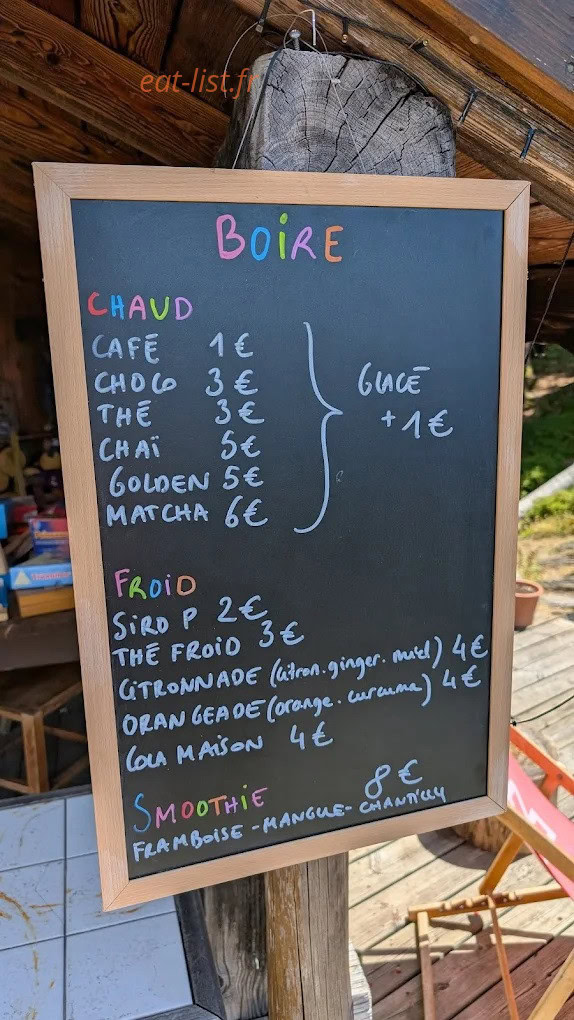 eat-list.fr
BOIRE
CHAUD
CAFÉ 1€
CHOCO 3€
THÉ 3€
CHAÏ 5€
GOLDEN 5€
MATCHA 6€
GLACÉ
+1€
FROID
SIROP 2€
THÉ FROID 3€
CITRONNADE (citron.ginger.miel) 4€
ORANGEADE (orange.curcuma) 4€
COLA MAISON 4€
SMOOTHIE 8€
FRAMBOISE-MANGUE-CHANTILLY